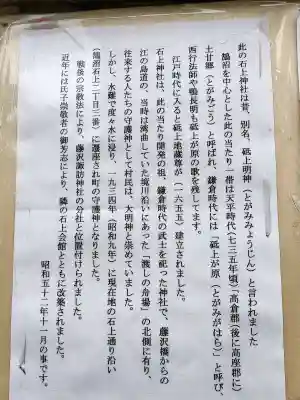 此の石上神社は昔、別名、砥上明神（とがみみょうじん）と言われました
鵠沼を中心とした此の当たり一帯は天平時代（七三五年頃）高倉郡（後に高座郡に）
土甘郷（とがみごう）と呼ばれ、鎌倉時代には「砥上が原（とがみがはら）」と呼び、
西行法師や鴨長明も砥上が原の歌を残してます。
江戸時代に入ると砥上地蔵尊が（一六五五）建立されました。
石上神社は、此の当たり開発の祖、鎌倉時代の武士を祀った神社で、藤沢橋からの
江の島道の、当時は湾曲していた境川沿いにあった「渡しの舟場」の北側に有り、
往来する人たちの守護神として村民は、大明神と崇めていました。
しかし、水難で度々水に浸り、一九三四年（昭和九年）に現在地の石上通り沿い
（鵠沼石上二丁目二番）に遷座され町の守護神となりました。
戦後の宗教法により、藤沢諏訪神社の分社と位置付けられました。
近年には氏子崇敬者の御芳志により、隣の石上会館ともに改築されました。
昭和五十二年十一月の事です。